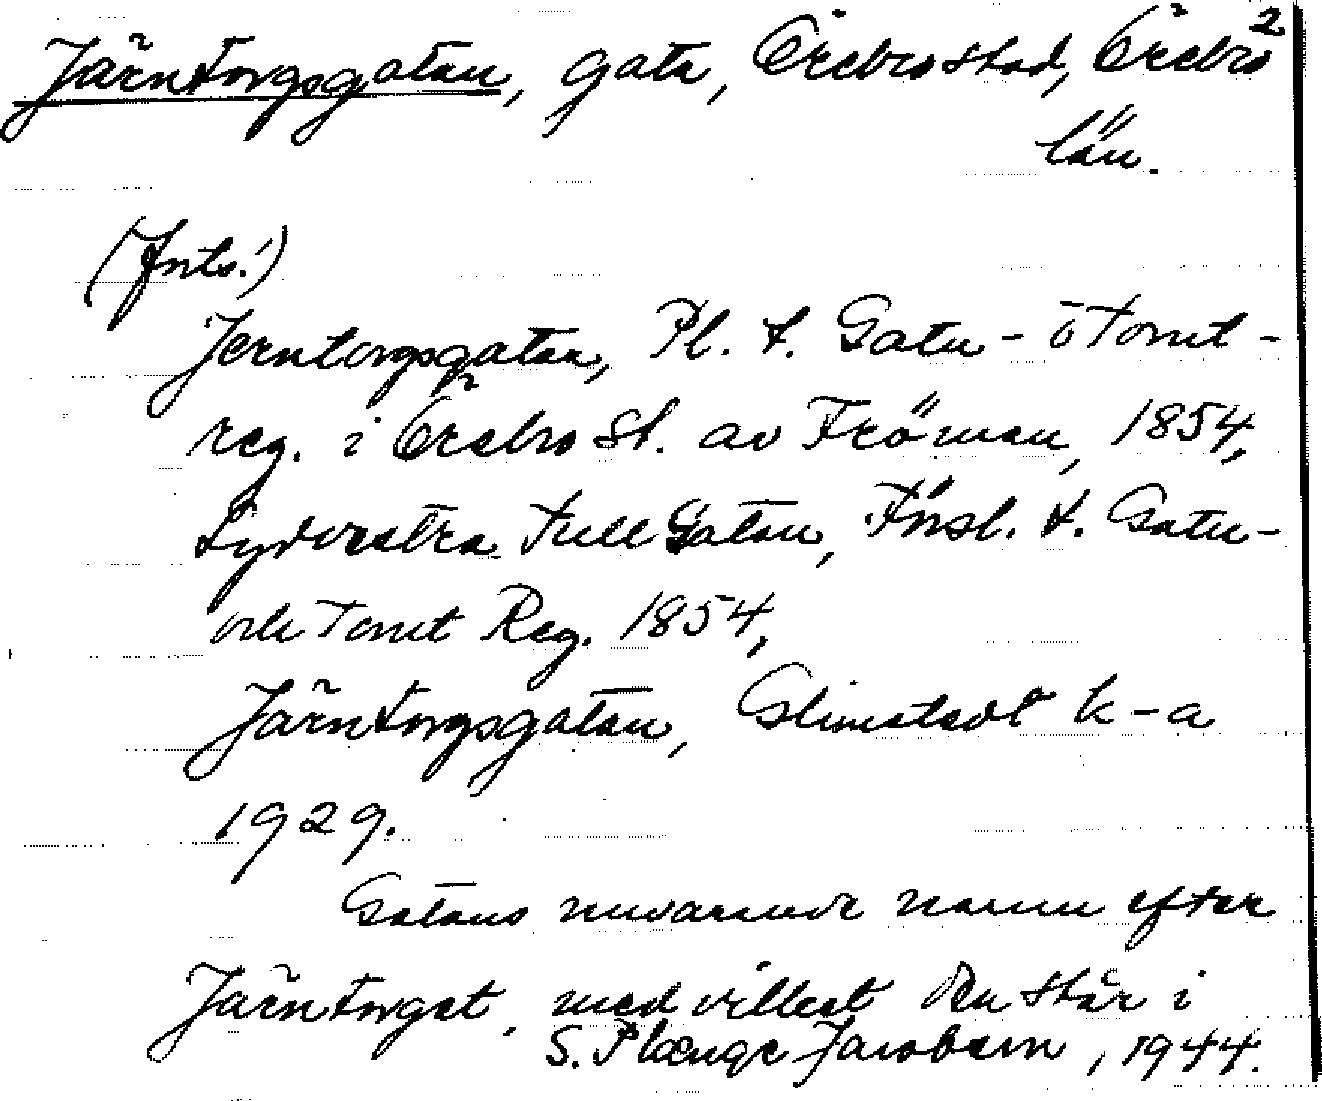 2
Järntorgsgatan, gata, Örebro stad, Örebro
län.
(Jnts.!)
Jerntorgsgatan, Pl. t. Gatu- o Tomt-
reg. i Örebro St. av Fröman, 1854,
Sydvestra Tull Gatan, Försl. t. Gatu-
och Tomt Reg. 1854,
Järntorgsgatan, Glimstedt k-a
1929.
Gatans nuvarande namn efter
Järntorget, med vilket den står i
S. Plænge Jacobson, 1944.